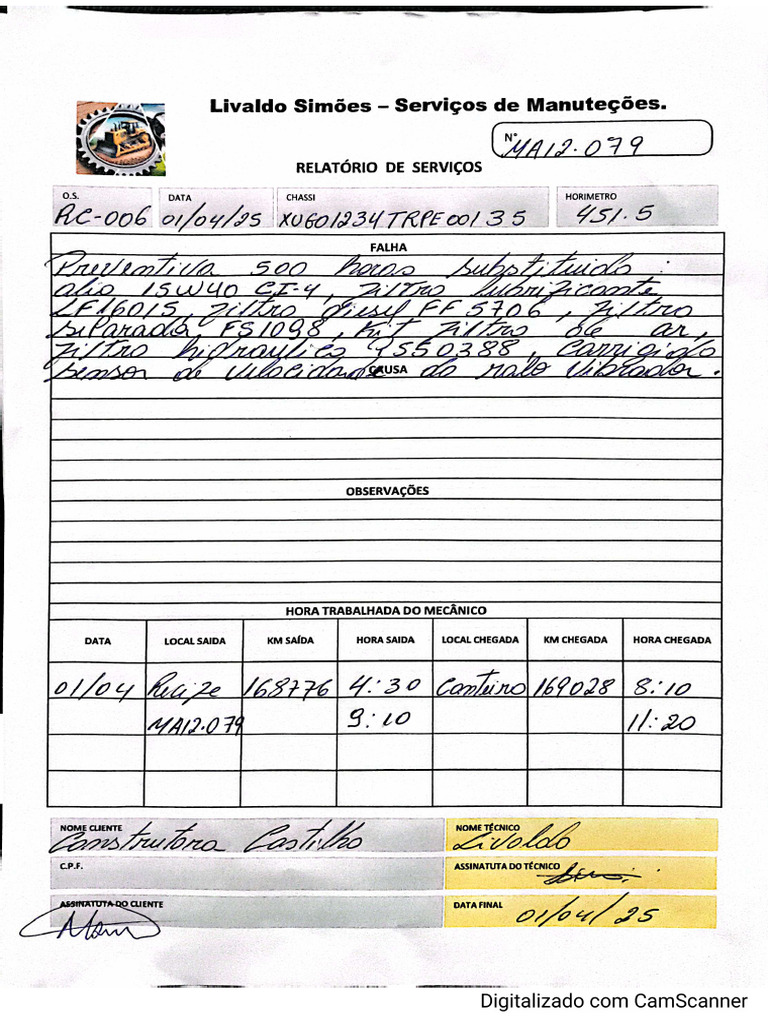 Livaldo Simões – Serviços de Manuteções.
N° MA12.079
RELATÓRIO DE SERVIÇOS
O.S. DATA CHASSI HORIMETRO
RC-006 01/04/25 XUG01234TRPE00135 451.5
FALHA
Preventiva 500 horas substituido :
olio 15W40 CI-4, filtro lubrificante
LF16015, filtro diesel FF5706, filtro
separado, FS1098, Kit filtro de ar,
filtro hidraulico 4550388, Carrigido
sensor de velocidade do ralo vibrador.
CAUSA
OBSERVAÇÕES
HORA TRABALHADA DO MECÂNICO
DATA LOCAL SAIDA KM SAÍDA HORA SAIDA LOCAL CHEGADA KM CHEGADA HORA CHEGADA
01/04 Recife 168776 4:30 Canteiro 169028 8:10
MA12.079 9:10 11:20
NOME CLIENTE NOME TÉCNICO
Construtora Castilho Livaldo
C.P.F. ASSINATUTA DO TÉCNICO
ASSINATUTA DO CLIENTE DATA FINAL
01/04/25
Digitalizado com CamScanner